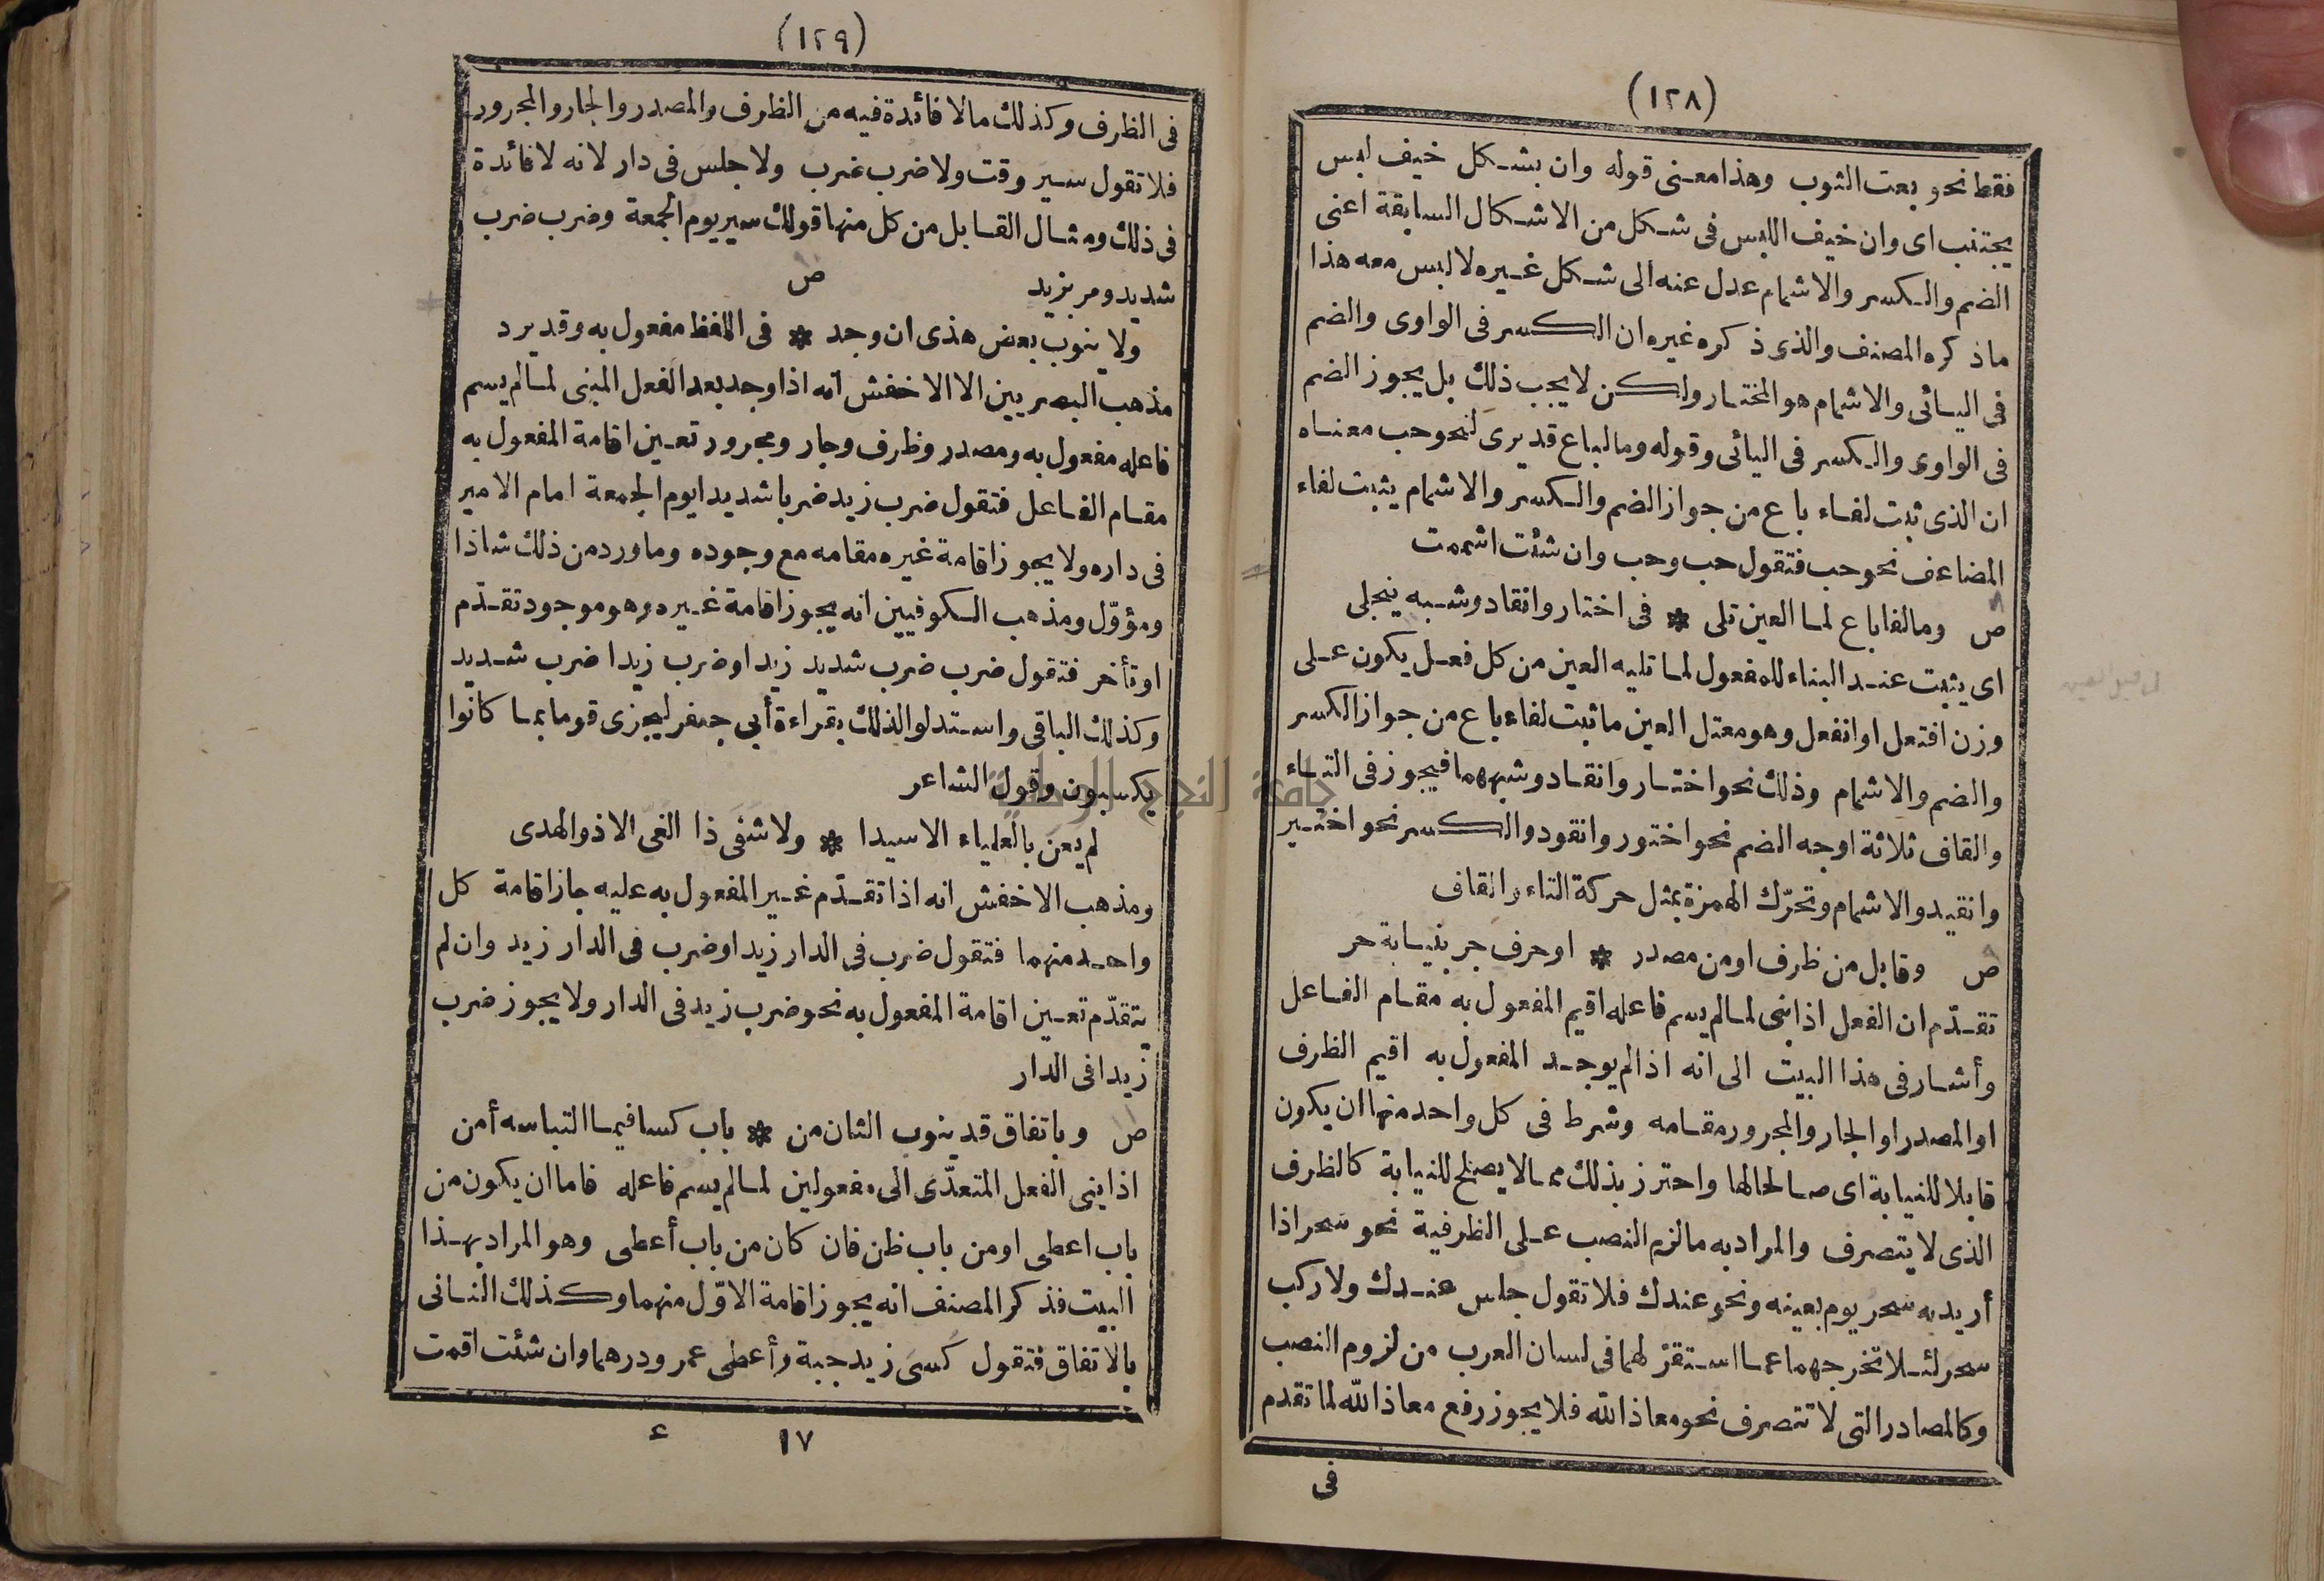 (١٢٨)
فقط نحو بعت الثوب وهذا معنى قوله وان بشكل خيف لبس
يجتنب اى وان خيف اللبس فى شكل من الاشكال السابقة اعنى
الضم والكسر والاشمام عدل عنه الى شكل غيره لا لبس معه هذا
ما ذكره المصنف والذى ذكره غيره ان الكسر فى الواوى والضم
فى اليائى والاشمام هو المختار ولكن لا يجب ذلك بل يجوز الضم
فى الواوى والكسر فى اليائى وقوله وما لباع قد يرى لنحو حب معناه
ان الذى ثبت لفاء باع من جواز الضم والكسر والاشمام يثبت لفاء
المضاعف نحو حب فتقول حب وحب وان شئت اشممت
ص وما لفا باع لما العين تلى * فى اختار وانقاد وشبه ينجلى
اى يثبت عند البناء للمفعول لما تليه العين من كل فعل يكون على
وزن افتعل او انفعل وهو معتل العين ما ثبت لفاء باع من جواز الكسر
والضم والاشمام وذلك نحو اختار وانقاد وشبههما فيجوز فى التاء
والقاف ثلاثة اوجه الضم نحو اختور وانقود والكسر نحو اختير
وانقيد والاشمام وتحرّك الهمزة بمثل حركة التاء والقاف
ص وقابل من ظرف او من مصدر * او حرف جر بنيابة حر
تقدّم ان الفعل اذا بنى لما لم يسم فاعله اقيم المفعول به مقام الفاعل
وأشار فى هذا البيت الى انه اذا لم يوجد المفعول به اقيم الظرف
او المصدر او الجار والمجرور مقامه وشرط فى كل واحد منها ان يكون
قابلا للنيابة اى صالحا لها واحترز بذلك مما لا يصلح للنيابة كالظرف
الذى لا يتصرف والمراد به ما لزم النصب على الظرفية نحو سحر اذا
أريد به سحر يوم بعينه ونحو عندك فلا تقول جلس عندك ولا ركب
سحر لئلا تخرجهما عما استقرّ لهما فى لسان العرب من لزوم النصب
وكالمصادر التى لا تتصرف نحو معاذ الله فلا يجوز رفع معاذ الله لما تقدم
فى
(١٢٩)
فى الظرف وكذلك ما لا فائدة فيه من الظرف والمصدر والجار والمجرور
فلا تقول سير وقت ولا ضرب ضرب ولا جلس فى دار لانه لا فائدة
فى ذلك ومثال القابل من كل منها قولك سير يوم الجمعة وضرب ضرب
شديد ومر بزيد ص
ولا ينوب بعض هذى ان وجد * فى اللفظ مفعول به وقد يرد
مذهب البصريين الا الاخفش انه اذا وجد بعد الفعل المبنى لما لم يسم
فاعله مفعول به ومصدر وظرف وجار ومجرور تعين اقامة المفعول به
مقام الفاعل فتقول ضرب زيد ضربا شديدا يوم الجمعة امام الامير
فى داره ولا يجوز اقامة غيره مقامه مع وجوده وما ورد من ذلك شاذا
ومؤوّل ومذهب الكوفيين انه يجوز اقامة غيره وهو موجود تقدّم
او تأخر فتقول ضرب ضرب شديد زيدا وضرب زيدا ضرب شديد
وكذلك الباقى واستدلوا لذلك بقراءة أبى جعفر ليجزى قوما بما كانوا
يكسبون وقول الشاعر
لم يعن بالعلياء الا سيدا * ولا شفى ذا الغى الا ذو الهدى
ومذهب الاخفش انه اذا تقدّم غير المفعول به عليه جاز اقامة كل
واحد منهما فتقول ضرب فى الدار زيدا وضرب فى الدار زيد وان لم
يتقدّم تعين اقامة المفعول به نحو ضرب زيد فى الدار ولا يجوز ضرب
زيدا فى الدار
ص وباتفاق قد ينوب الثان من * باب كسا فيما التباسه أمن
اذا بنى الفعل المتعدّى الى مفعولين لما لم يسم فاعله فاما ان يكون من
باب اعطى او من باب ظن فان كان من باب أعطى وهو المراد بهذا
البيت فذكر المصنف انه يجوز اقامة الاوّل منهما وكذلك الثانى
بالاتفاق فتقول كسى زيد جبة وأعطى عمرو درهما وان شئت اقمت
١٧ ع
جامعة النجاح الوطنية